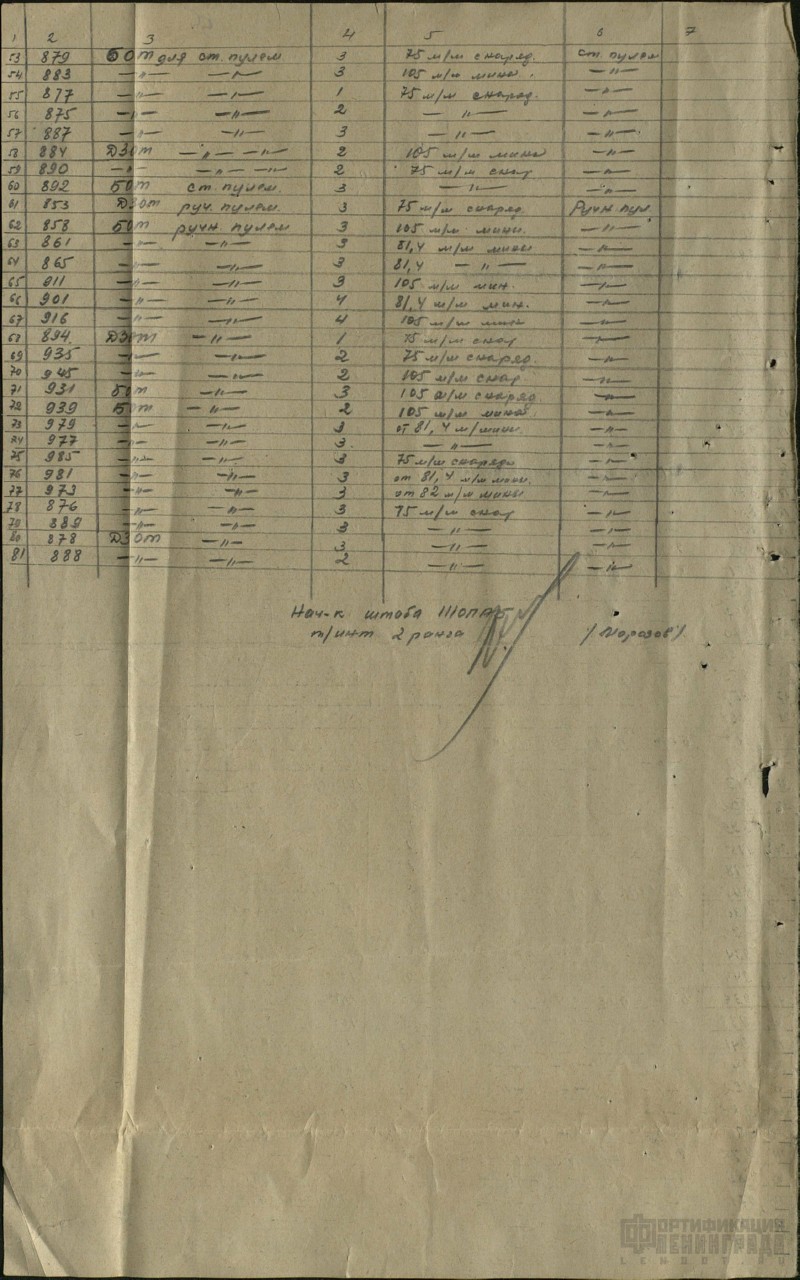 1 2 3 4 5 6 7
53 879 БОТ для ст. пулем 3 75 м/м снаряд. ст. пулем
54 883 —"— —"— 3 105 м/м мина. —"—
55 877 —"— —"— 1 75 м/м снаряд. —"—
56 875 —"— —"— 2 —"— —"—
57 887 —"— —"— 3 —"— —"—
58 884 ДЗОТ —"— —"— 2 105 м/м мина —"—
59 890 —"— —"— —"— 2 75 м/м снар —"—
60 892 БОТ ст. пулем. 3 —"— —"—
61 853 ДЗОТ руч. пулем. 3 75 м/м снаряд. Ручн. пул.
62 858 БОТ ручн. пулем 3 105 м/м мин. —"—
63 861 —"— —"— 3 81,4 м/м мины —"—
64 865 —"— —"— 3 81,4 —"— —"—
65 911 —"— —"— 3 105 м/м мин. —"—
66 901 —"— —"— 4 81,4 м/м мин. —"—
67 916 —"— —"— 4 105 м/м мин —"—
68 894. ДЗОТ —"— 1 75 м/м снар —"—
69 935 —"— —"— 2 75 м/м снаряд. —"—
70 945 —"— —"— 2 105 м/м снар —"—
71 931 БОТ —"— 3 105 м/м снаряд —"—
72 939 БОТ —"— 2 105 м/м мина —"—
73 979 —"— —"— 3 от 81,4 м/мины. —"—
74 977 —"— —"— 3. —"— —"—
75 985 —"— —"— 3 75 м/м снаряда —"—
76 981 —"— —"— 3 от 81,4 м/м мины. —"—
77 973 —"— —"— 3 от 82 м/м мины —"—
78 876 —"— —"— 3 75 м/м снар —"—
79 889 —"— —"— 3 —"— —"—
80 878 ДЗОТ —"— 3 —"— —"—
81 888 —"— —"— 2 —"— —"—
Нач-к штаба
т/инт 2 ранга /Морозов/
ФОРТИФИКАЦИЯ
ЛЕНИНГРАДА
LENBOT.RU